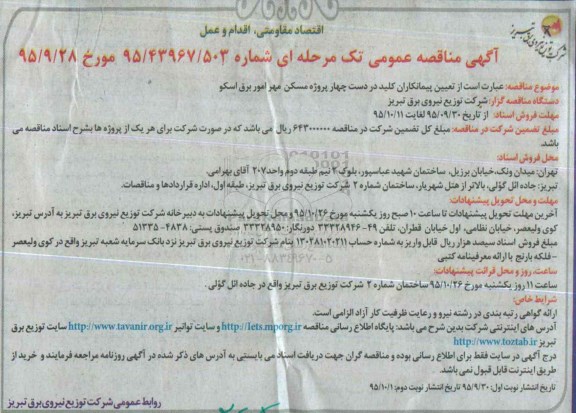 اقتصاد مقاومتی، اقدام و عمل
شرکت توزیع نیروی برق تبریز
آگهی مناقصه عمومی تک مرحله ای شماره ۹۵/۴۳۹۶۷/۵۰۳ مورخ ۹۵/۹/۲۸
موضوع مناقصه: عبارت است از تعیین پیمانکاران کلید در دست چهار پروژه مسکن مهر امور برق اسکو
دستگاه مناقصه گزار: شرکت توزیع نیروی برق تبریز
مهلت فروش اسناد: از تاریخ ۹۵/۰۹/۳۰ لغایت ۹۵/۱۰/۱۱
مبلغ تضمین شرکت در مناقصه: مبلغ کل تضمین شرکت در مناقصه ۶۴۳۰۰۰۰۰۰ ریال می باشد که در صورت شرکت برای هر یک از پروژه ها بشرح اسناد مناقصه می
باشد.
محل فروش اسناد:
تهران: میدان ونک، خیابان برزیل، ساختمان شهید عباسپور، بلوک ۲ نیم طبقه دوم واحد ۲۰۷ آقای بهرامی.
تبریز: جاده ائل گولی، بالاتر از هتل شهریار، ساختمان شماره ۲ شرکت توزیع نیروی برق تبریز، طبقه اول، اداره قراردادها و مناقصات.
مهلت و محل تحویل پیشنهادات:
آخرین مهلت تحویل پیشنهادات تا ساعت ۱۰ صبح روز یکشنبه مورخ ۹۵/۱۰/۲۶ و محل تحویل پیشنهادات به دبیرخانه شرکت توزیع نیروی برق تبریز به آدرس تبریز،
کوی ولیعصر، خیابان نظامی، اول خیابان قطران، تلفن ۴۹-۳۳۳۲۸۹۴۶ دورنگار: ۳۳۳۲۸۹۵۰ صندوق پستی: ۴۸۳۸-۵۱۳۳۵
مبلغ فروش اسناد سیصد هزار ریال قابل واریز به شماره حساب ۱۳۰۲۸۱۰۲۰۲۱۱ بنام شرکت توزیع نیروی برق تبریز نزد بانک سرمایه شعبه تبریز واقع در کوی ولیعصر
-فلکه بارنج با ارائه معرفینامه کتبی
ساعت، روز و محل قرائت پیشنهادات:
ساعت ۱۱ روز یکشنبه مورخ ۹۵/۱۰/۲۶ ساختمان شماره ۲ شرکت توزیع برق تبریز واقع در جاده ائل گولی.
شرایط خاص:
ارائه گواهی رتبه بندی در رشته نیرو و رعایت ظرفیت کار آزاد الزامی است.
آدرس های اینترنتی شرکت بدین شرح می باشد: پایگاه اطلاع رسانی مناقصه http://iets.mporg.ir و سایت توانیر http://www.tavanir.org.ir و سایت توزیع برق
تبریز http://www.toztab.ir
درج آگهی در سایت فقط برای اطلاع رسانی بوده و مناقصه گران جهت دریافت اسناد می بایستی به آدرس های ذکر شده در آگهی روزنامه مراجعه فرمایند و خرید از
طریق اینترنت قابل قبول نمی باشد.
تاریخ انتشار نوبت اول: ۹۵/۹/۳۰ تاریخ انتشار نوبت دوم: ۹۵/۱۰/۱
روابط عمومی شرکت توزیع نیروی برق تبریز